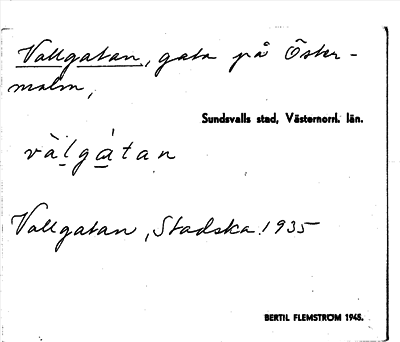 Vallgatan, gata på Öster-
malm,
Sundsvalls stad, Västernorrl. län.
va̍l̲gà̲tan
Vallgatan, Stadska. 1935
BERTIL FLEMSTRÖM 1948.